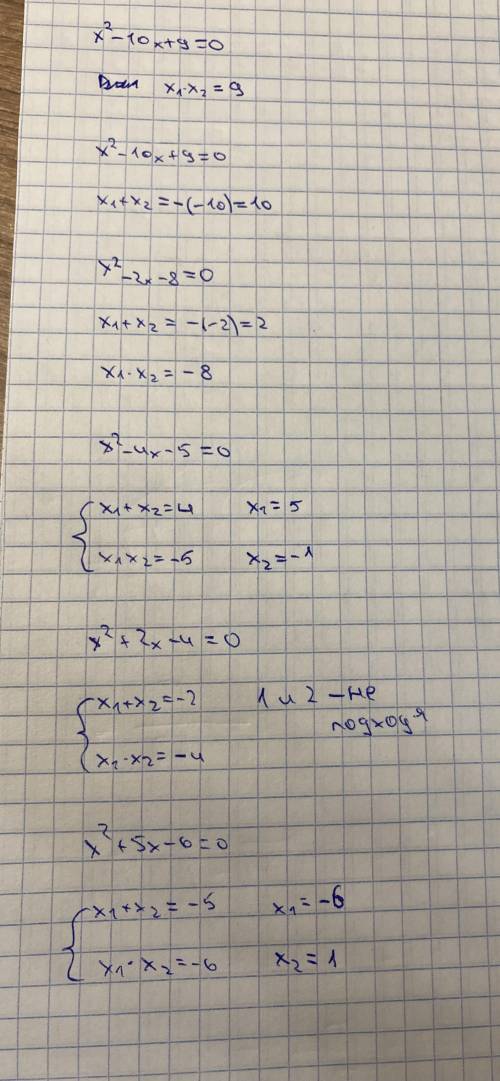 x²-10x+9=0
x₁·x₂=9
x²-10x+9=0
x₁+x₂=-(-10)=10
x²-2x-8=0
x₁+x₂=-(-2)=2
x₁·x₂=-8
x²-4x-5=0
{x₁+x₂=4 x₁=5
x₁x₂=-5 x₂=-1
x²+2x-4=0
{x₁+x₂=-2 1 и 2 -не
подходя
x₁·x₂=-4
x²+5x-6=0
{x₁+x₂=-5 x₁=-6
x₁·x₂=-6 x₂=1